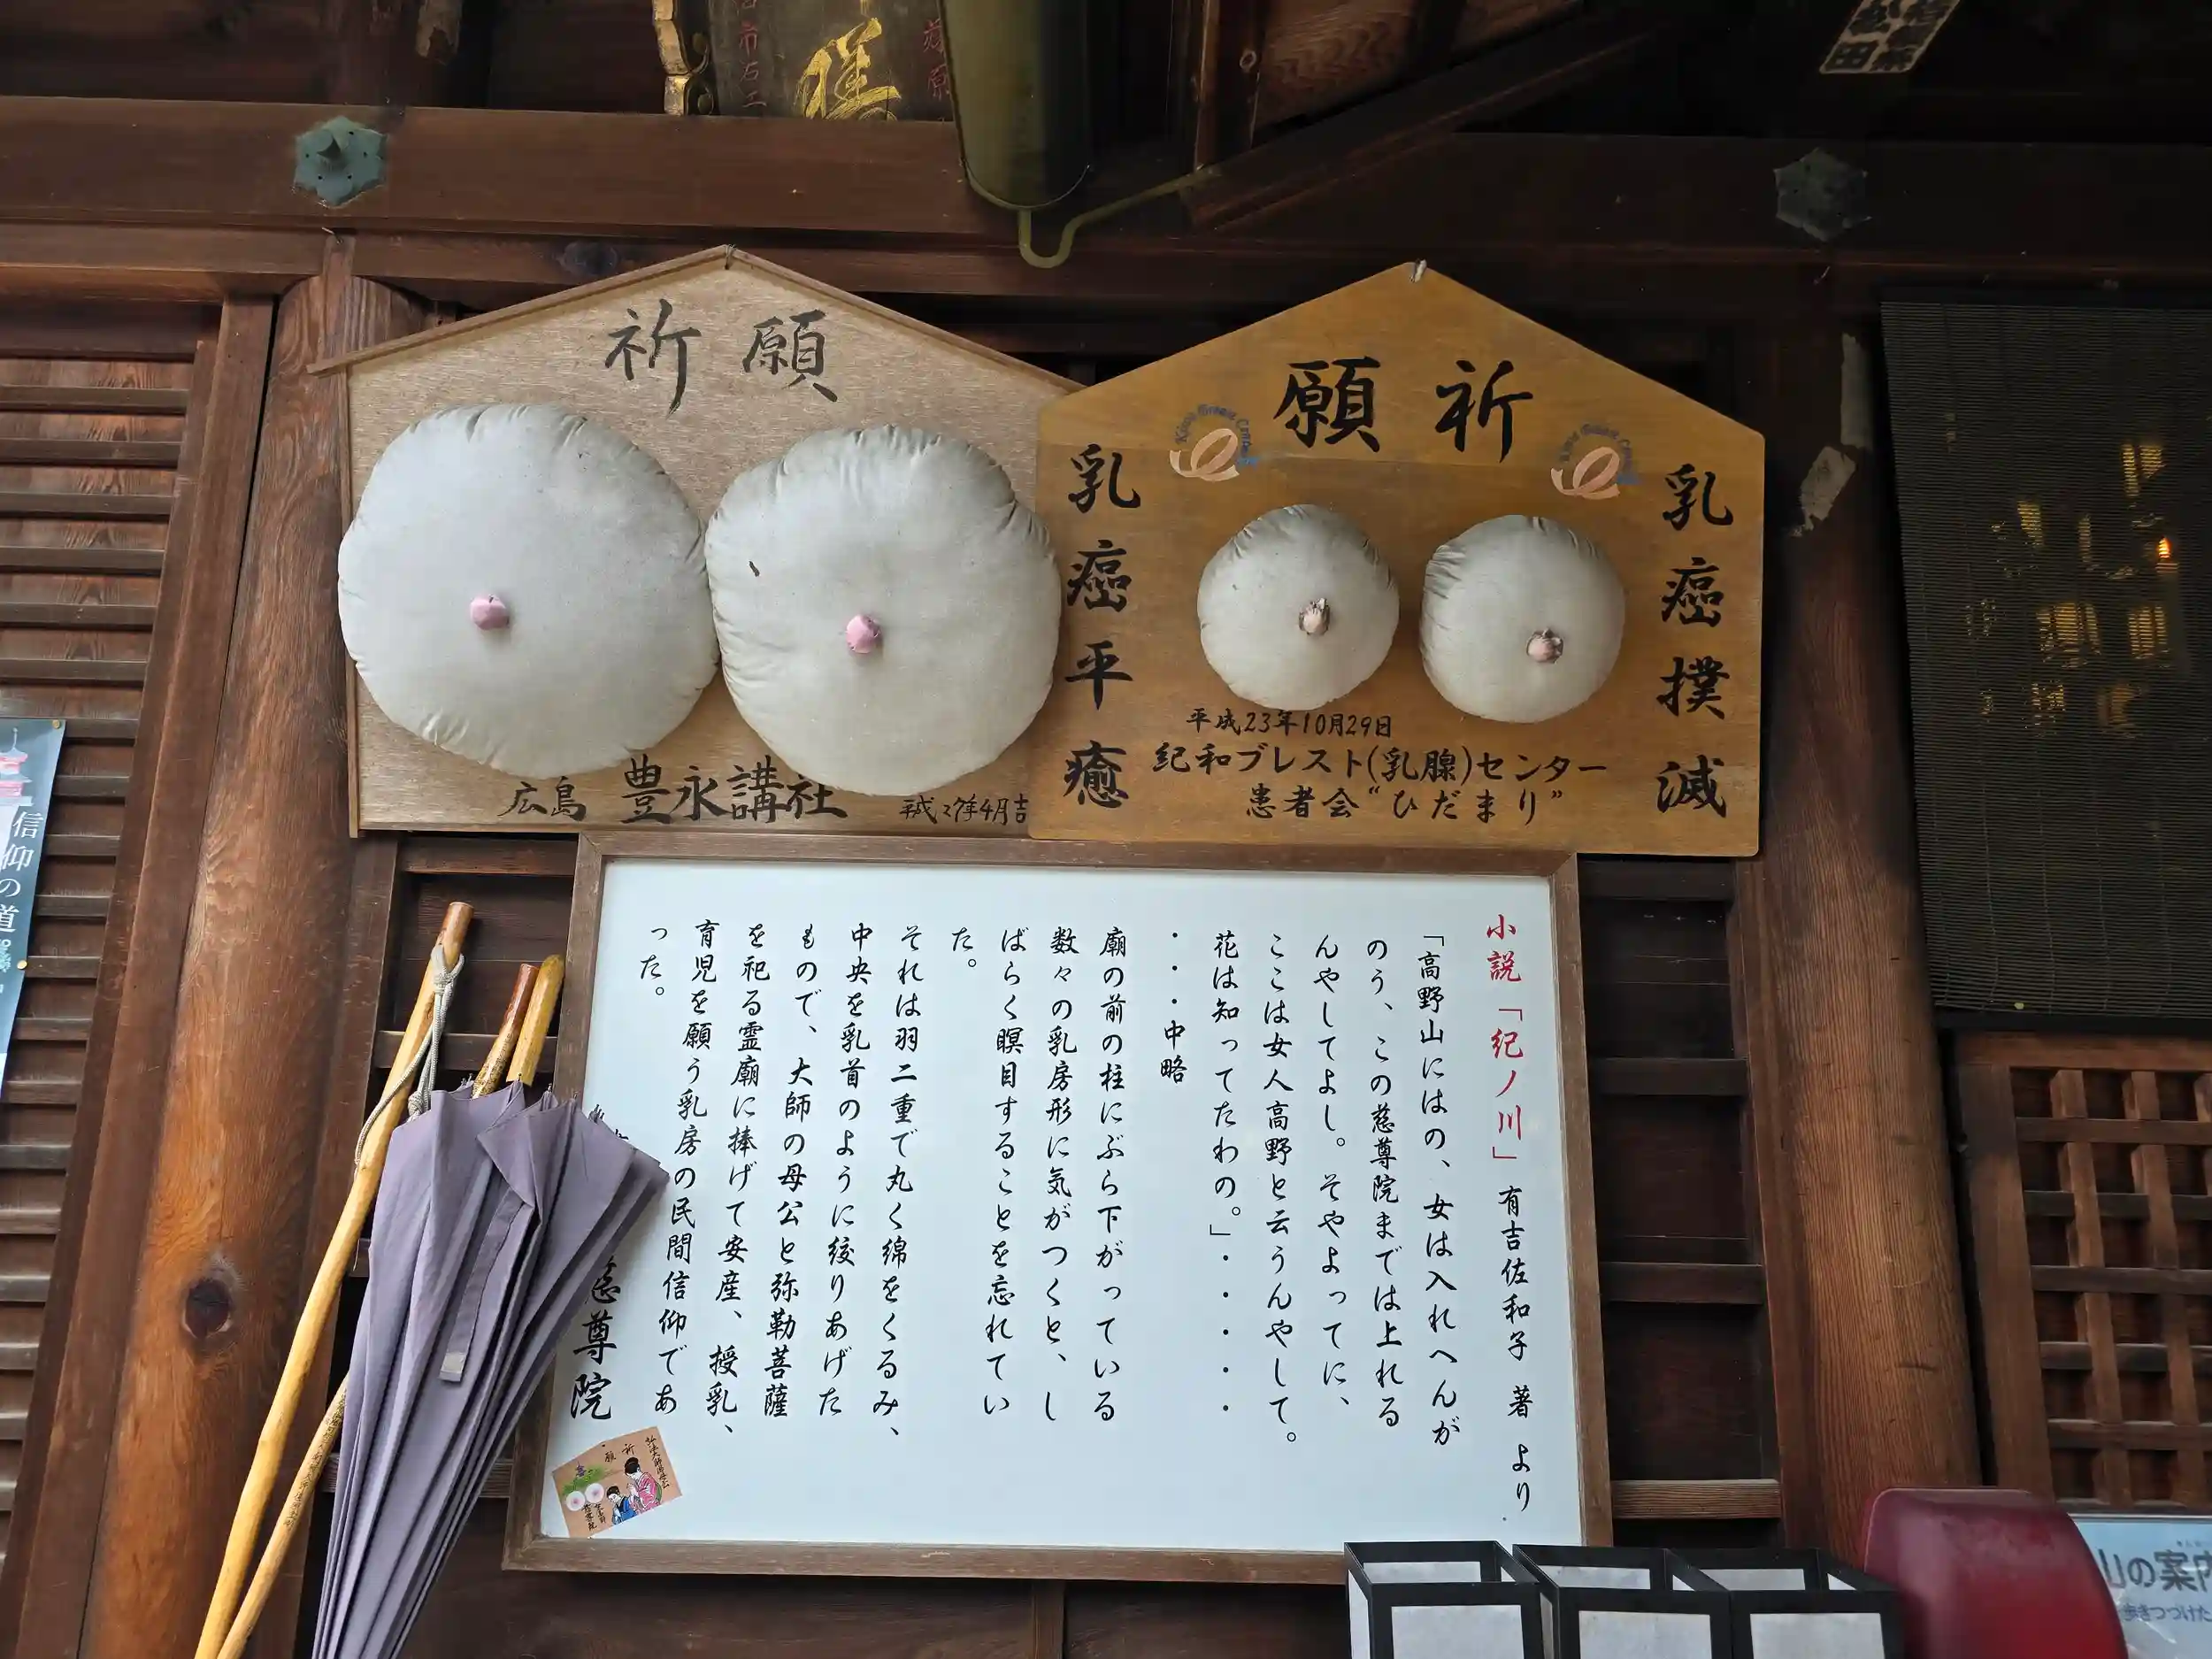 祈願
広島 豊永講社
願祈
乳癌撲滅
乳癌平癒
平成23年10月29日
紀和ブレスト(乳腺)センター
患者会“ひだまり”
小説「紀ノ川」有吉佐和子 著 より
「高野山にはの、女は入れへんが
のう、この慈尊院までは上れる
んやしてよし。そやよってに、
ここは女人高野と云うんやして。
花は知ってたわの。」・・・・・
・・・中略
廟の前の柱にぶら下がっている
数々の乳房形に気がつくと、し
ばらく瞑目することを忘れてい
た。
それは羽二重で丸く綿をくるみ、
中央を乳首のように絞りあげた
もので、大師の母公と弥勒菩薩
を祀る霊廟に捧げて安産、授乳、
育児を願う乳房の民間信仰であ
った。
慈尊院
信仰の道
山の案内